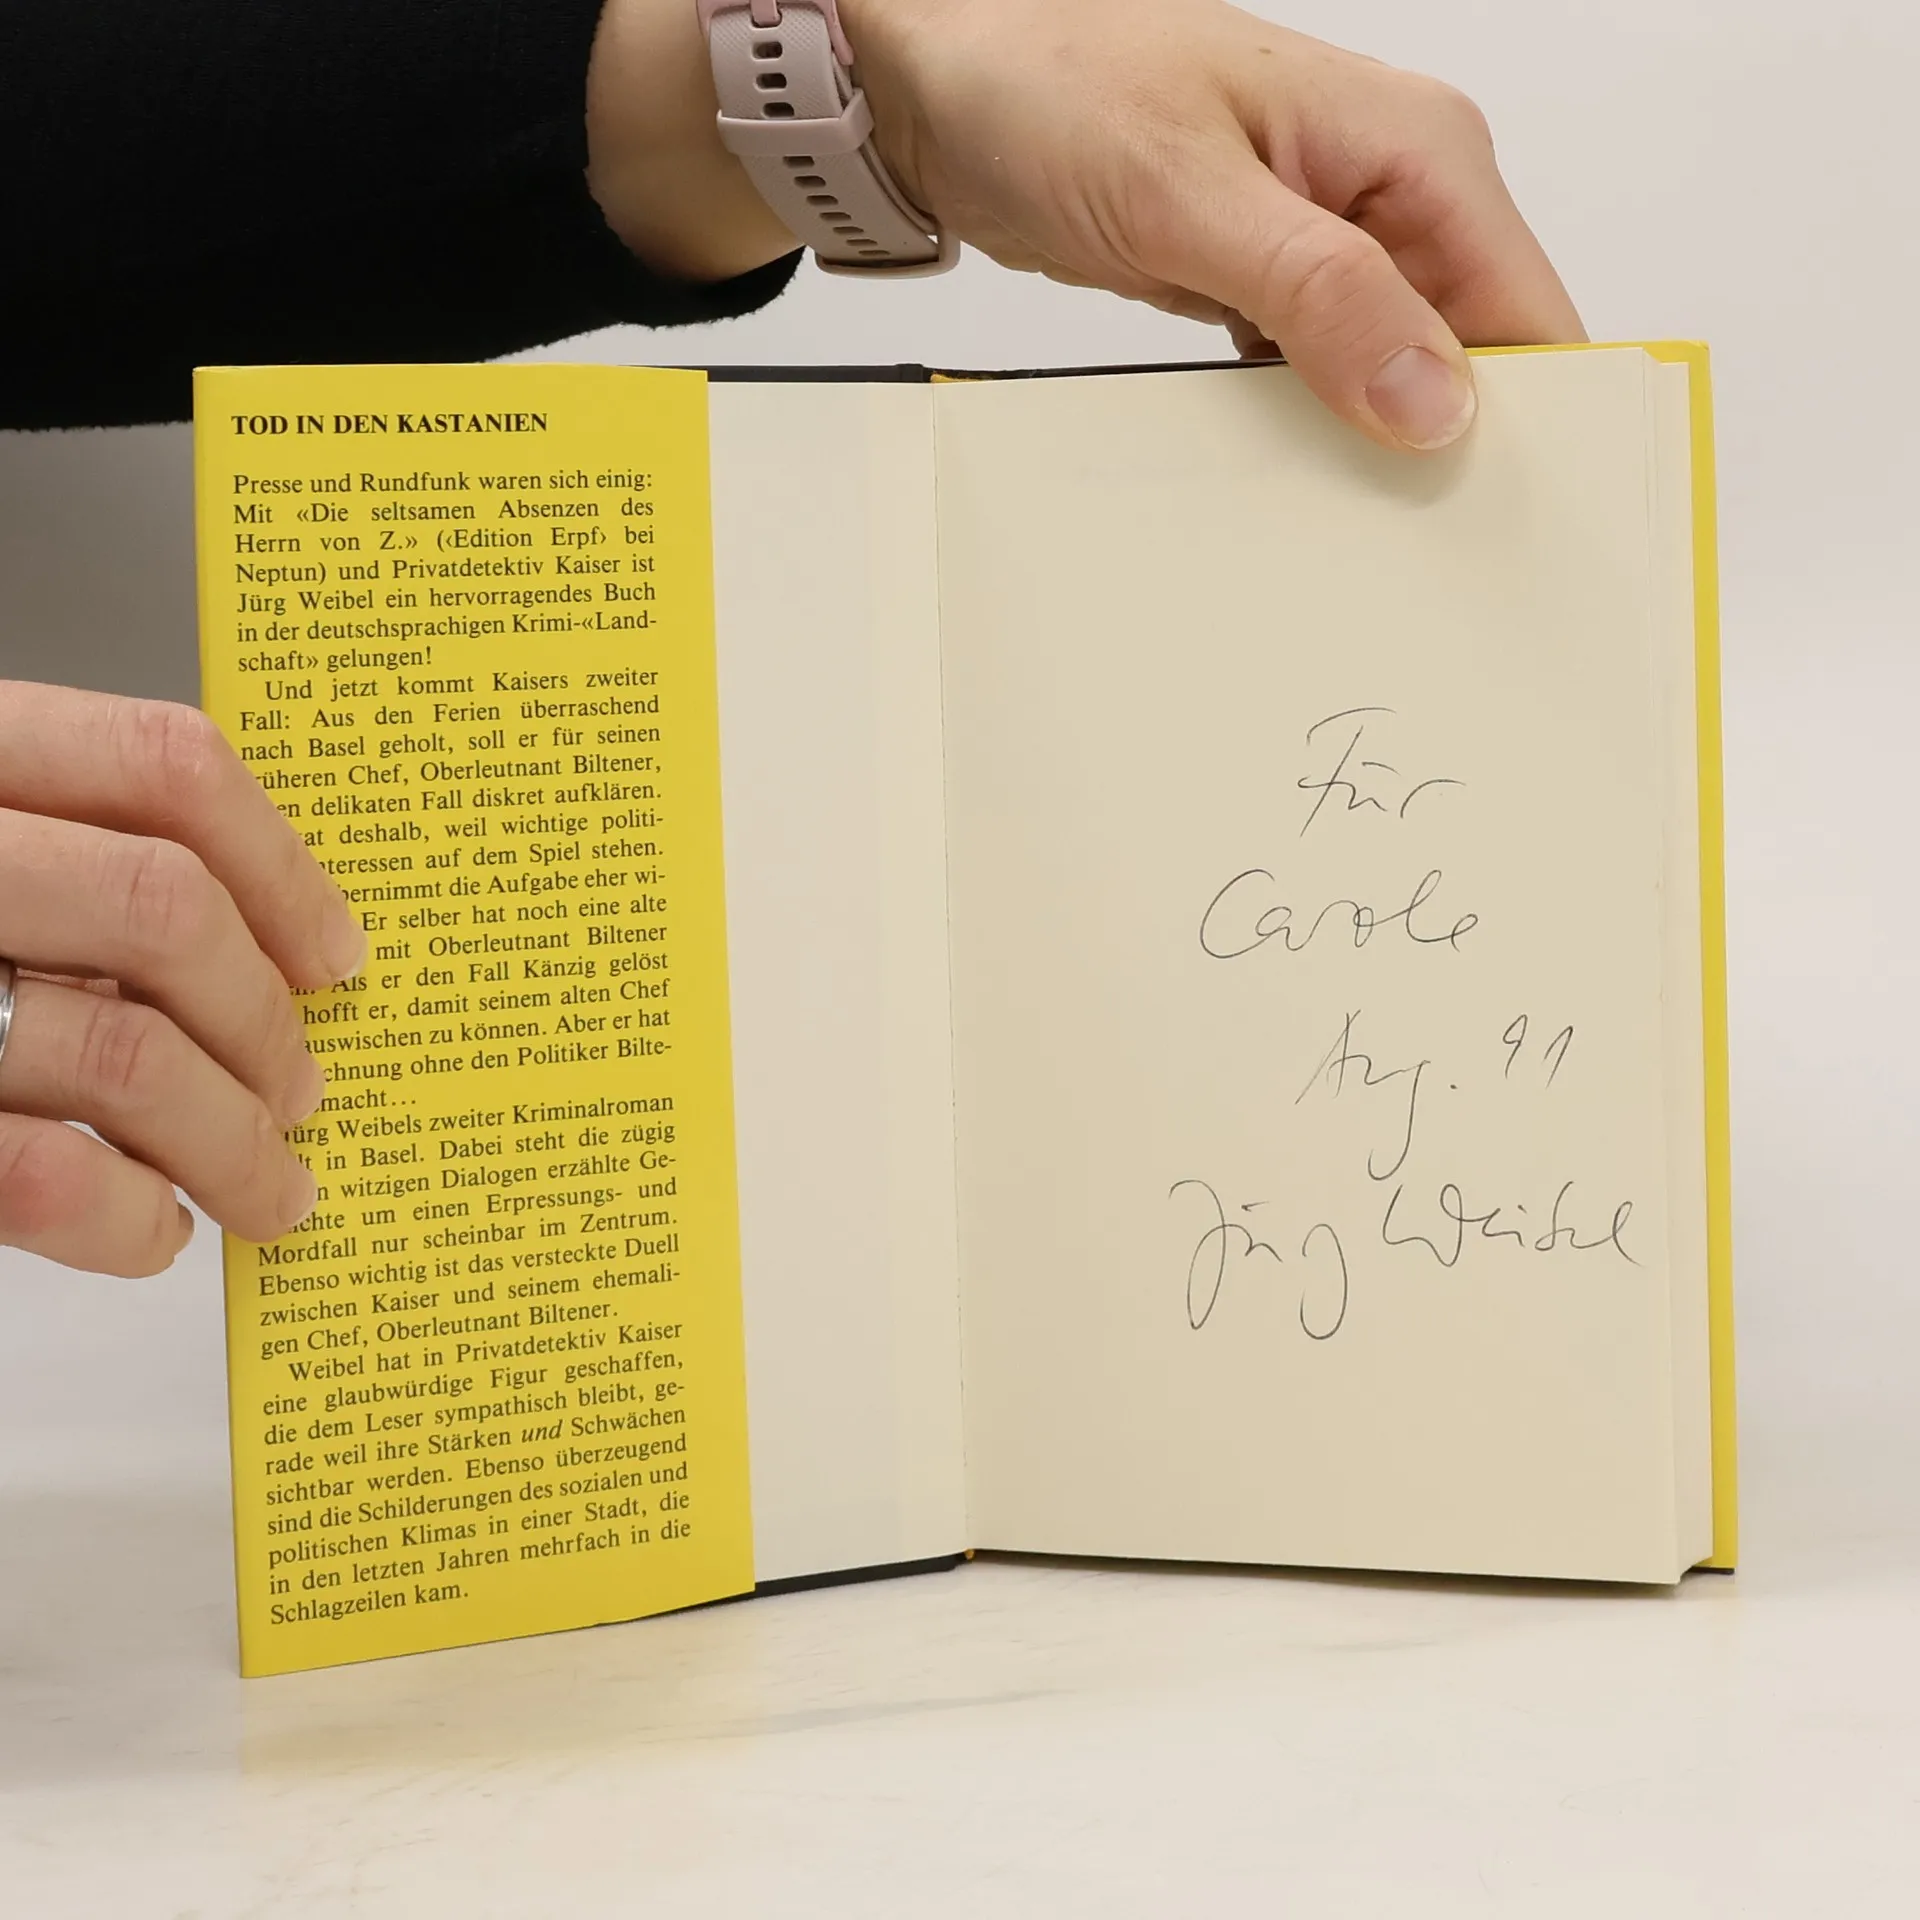 TOD IN DEN KASTANIEN
Presse und Rundfunk waren sich einig:
Mit «Die seltsamen Absenzen des
Herrn von Z.» (‹Edition Erpf› bei
Neptun) und Privatdetektiv Kaiser ist
Jürg Weibel ein hervorragendes Buch
in der deutschsprachigen Krimi-«Land-
schaft» gelungen!
Und jetzt kommt Kaisers zweiter
Fall: Aus den Ferien überraschend
nach Basel geholt, soll er für seinen
früheren Chef, Oberleutnant Biltener,
en delikaten Fall diskret aufklären.
at deshalb, weil wichtige politi-
nteressen auf dem Spiel stehen.
bernimmt die Aufgabe eher wi-
Er selber hat noch eine alte
mit Oberleutnant Biltener
Als er den Fall Känzig gelöst
hofft er, damit seinem alten Chef
auswischen zu können. Aber er hat
chnung ohne den Politiker Bilte-
macht...
Jürg Weibels zweiter Kriminalroman
lt in Basel. Dabei steht die zügig
n witzigen Dialogen erzählte Ge-
ichte um einen Erpressungs- und
Mordfall nur scheinbar im Zentrum.
Ebenso wichtig ist das versteckte Duell
zwischen Kaiser und seinem ehemali-
gen Chef, Oberleutnant Biltener.
Weibel hat in Privatdetektiv Kaiser
eine glaubwürdige Figur geschaffen,
die dem Leser sympathisch bleibt, ge-
rade weil ihre Stärken und Schwächen
sichtbar werden. Ebenso überzeugend
sind die Schilderungen des sozialen und
politischen Klimas in einer Stadt, die
in den letzten Jahren mehrfach in die
Schlagzeilen kam.
Für
Carole
Aug. 91
Jürg Weibel